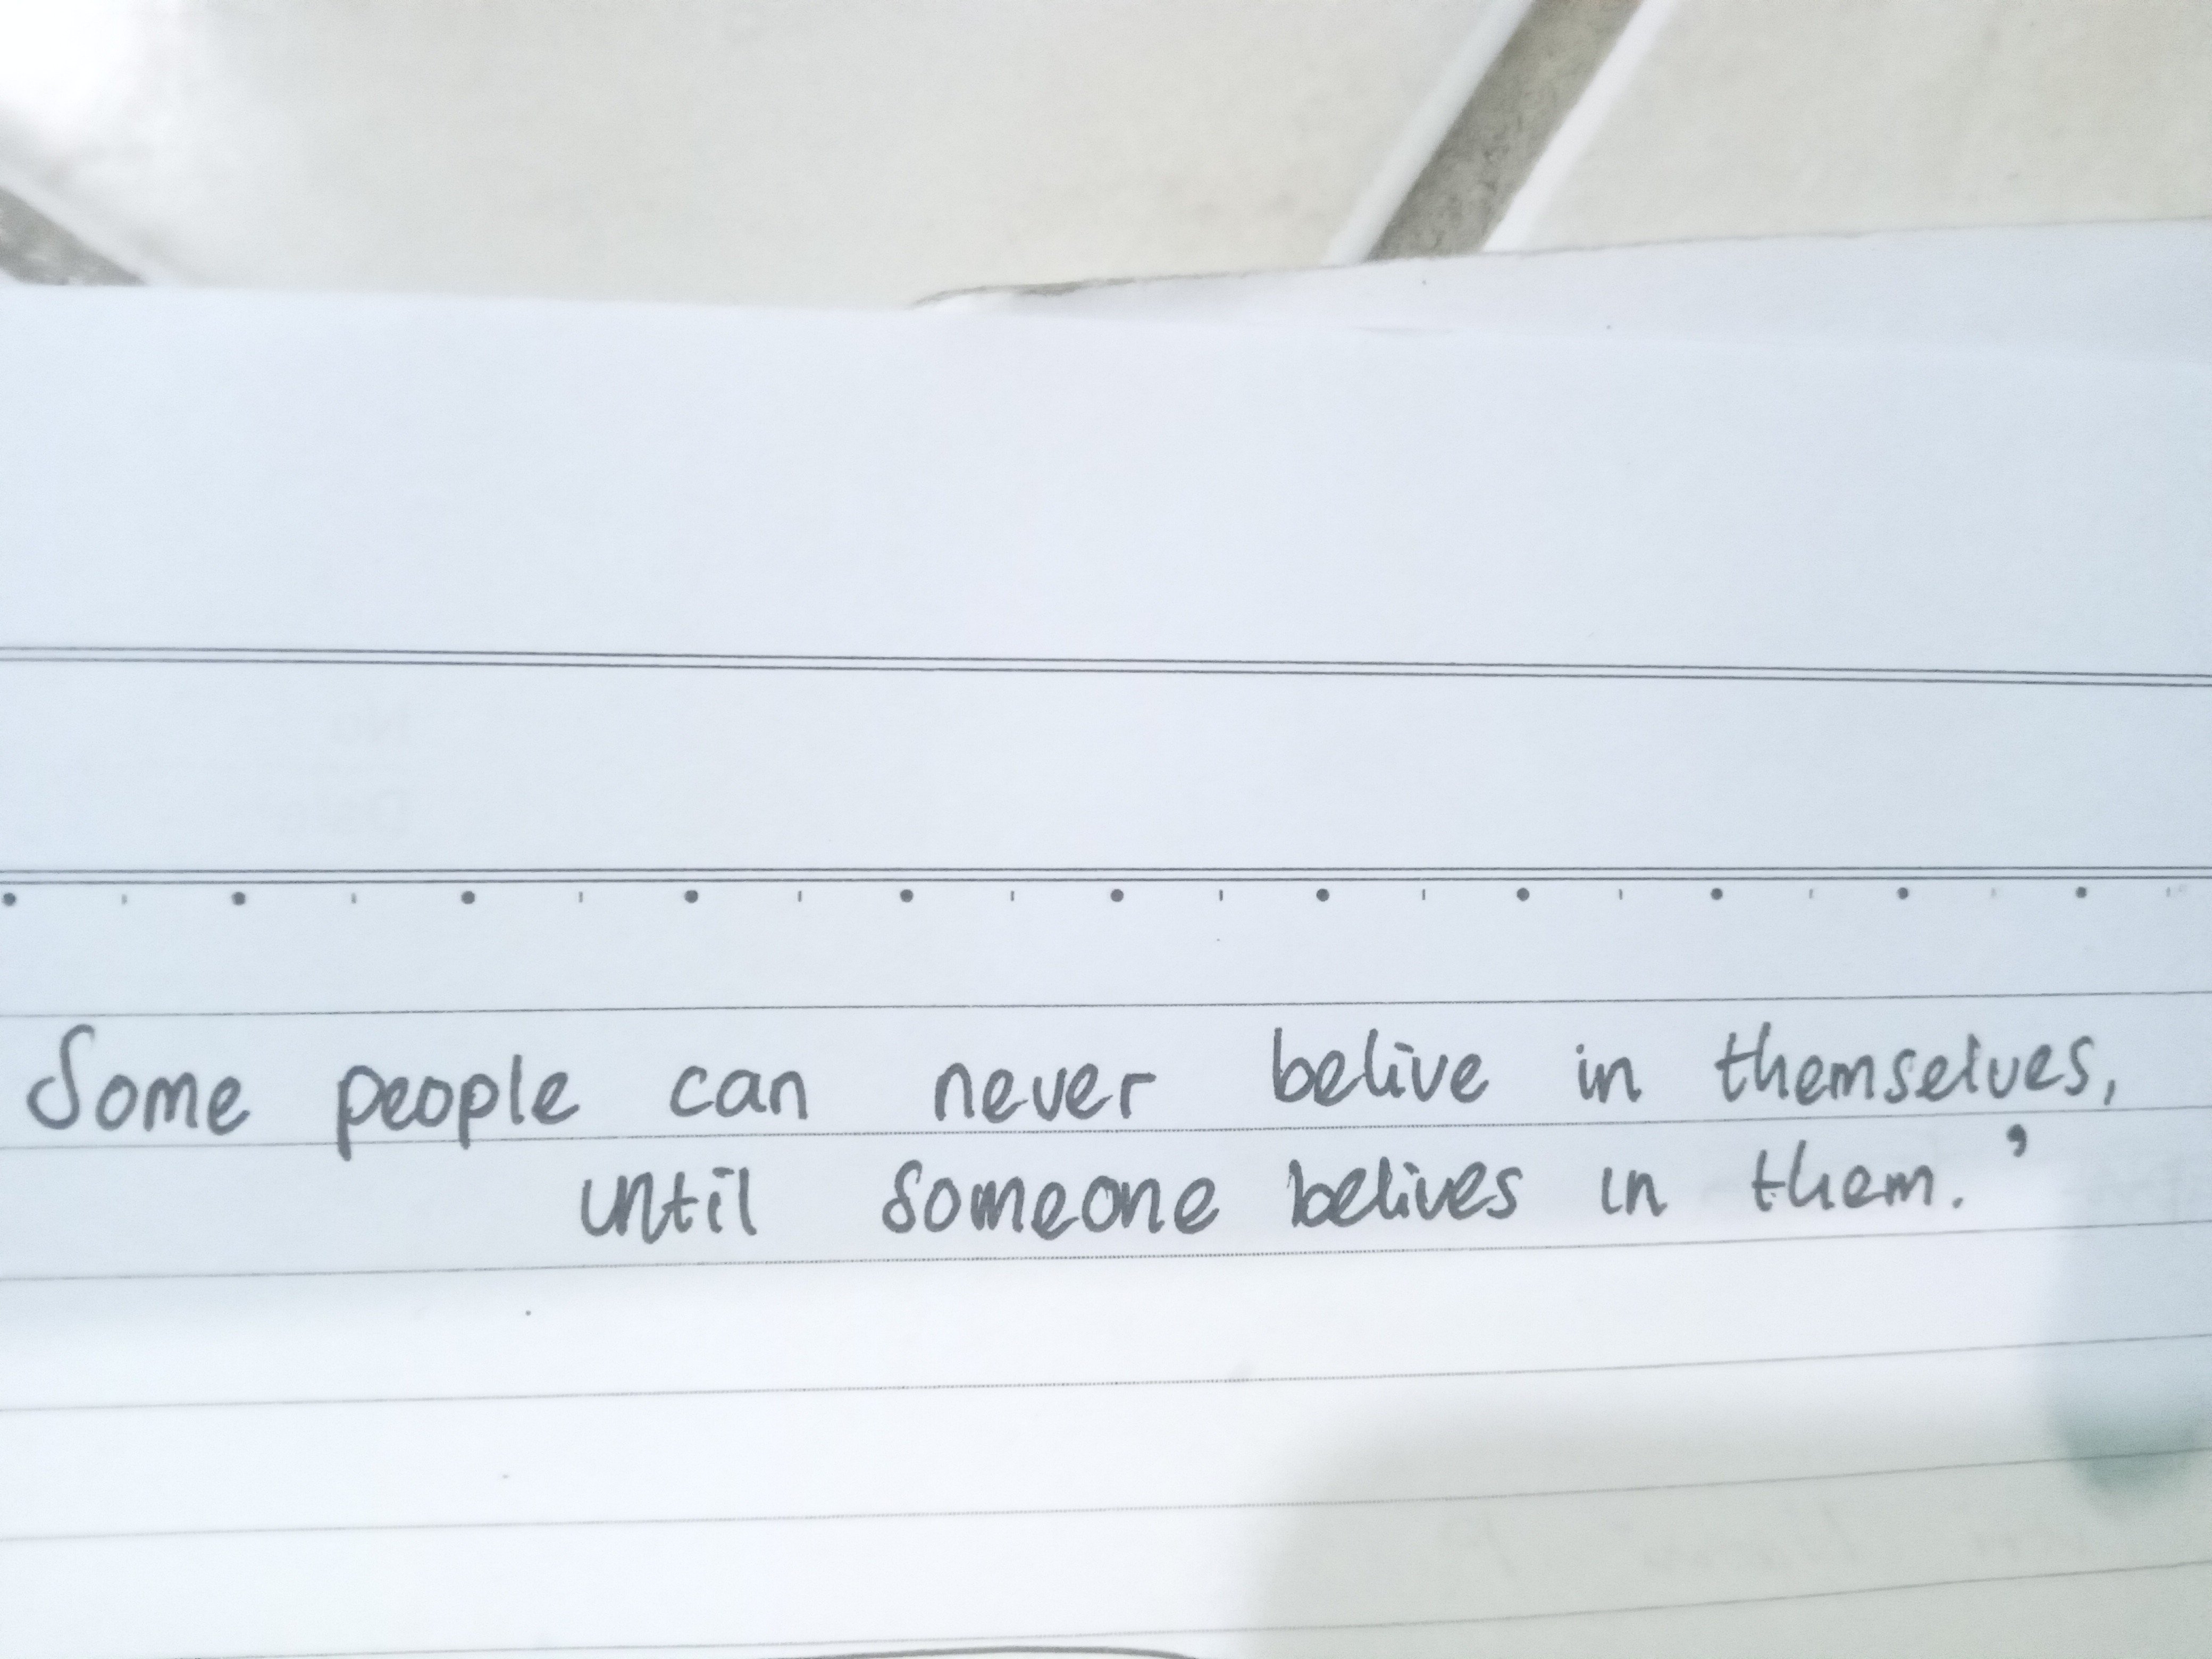 Some people can never belive in themselves,
until someone belives in them.’